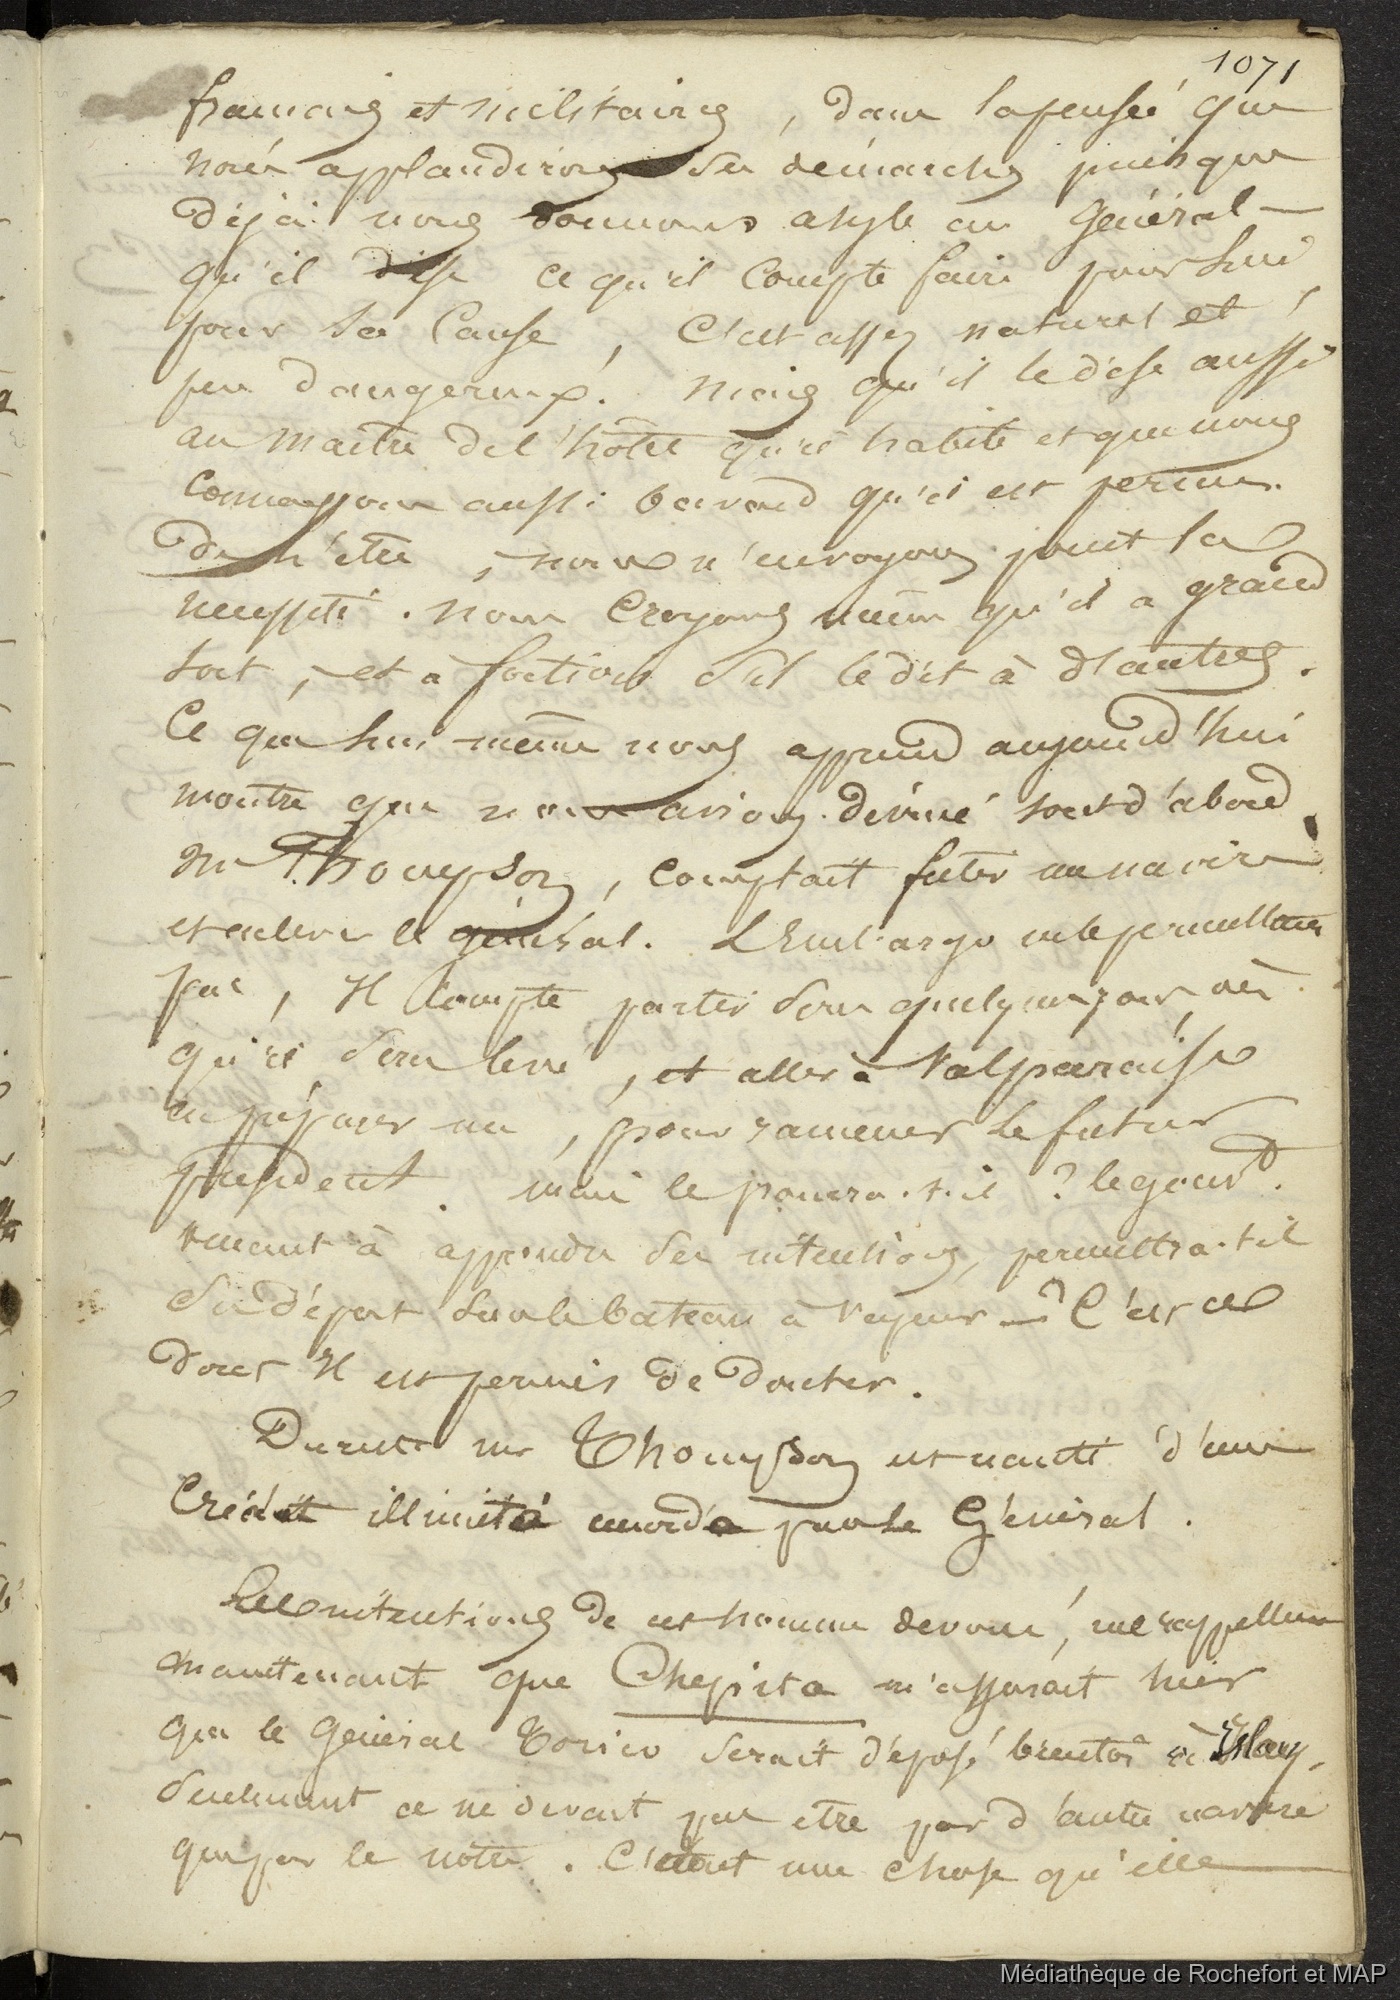 1071
français et militaires, dans la pensée que
nous applaudirons ses démarches puisque
déjà nous donnons asyle au Général —
qu'il dise ce qu'il compte faire pour lui,
pour sa Cause, C'est assez naturel et
peu dangereux. Mais qu'il le dise aussi
au maitre de l'hôtel qu'il habite et que nous
connaissons aussi bavard qu'il est permis
de l'être, nous n'en voyons point la
necessité. nous Croyons même qu'il a grand
tort, et a fortiori s'il le dit à d'autres.
Ce que lui même nous apprend aujourd'hui
montre que nous avions deviné tout d'abord
Mr Thompson, comptait fréter un navire
et enlever le général. L'Embargo ne le permettant
pas, Il Compte partir dans quelques jours, dès
qu'il sera levé, et aller à Valparaiso
en préparer un, pour ramener le futur
président. mais le pourra-t-il ? le gouvt.
venant à apprendre ses intentions, permettra-t-il
son départ sur le bateau à vapeur — ? C'est ce
dont Il est permis de douter.
Du reste Mr Thompson est nanti d'un
Crédit illimité accordé par le Général.
Les intentions de cet homme devoué, me rappellent
maintenant que Chepita m'assurait hier
que le Général Torico serait déposé bientôt à Islay,
Seulement ce ne devait pas etre par d'autre navire
que par le notre. C'etait une chose qu'elle
Médiathèque de Rochefort et MAP